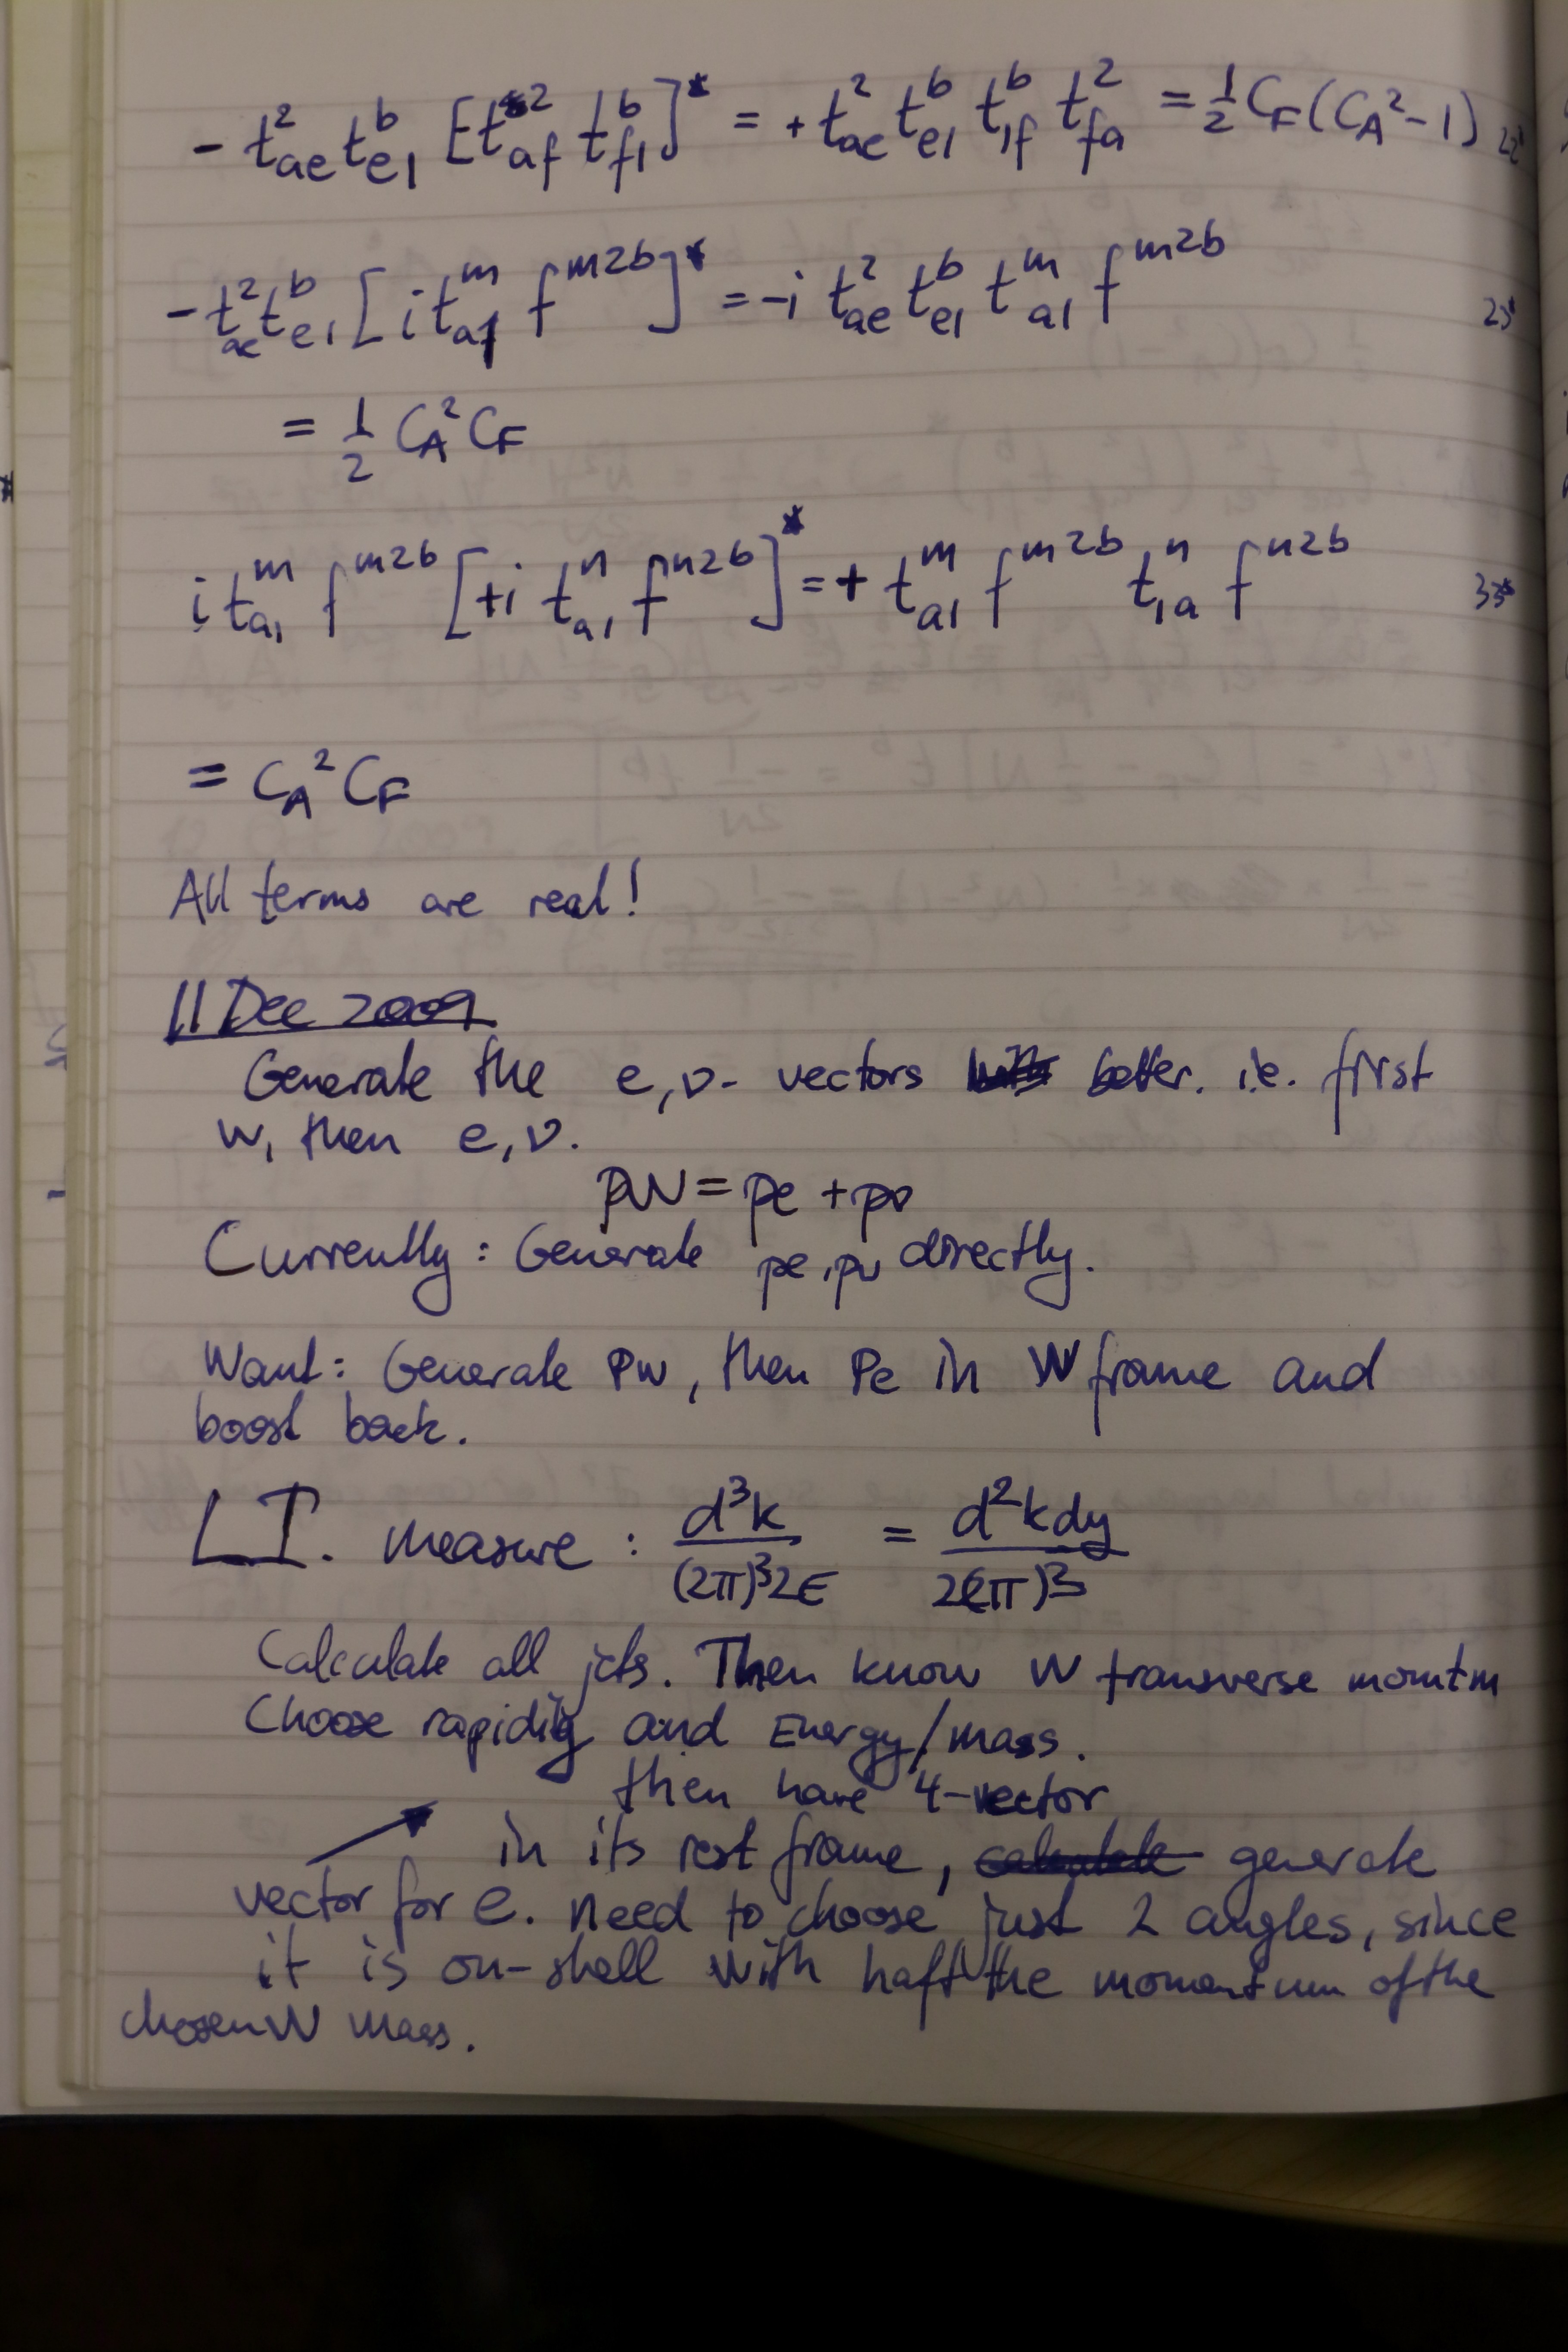 - t²_ae t^b_e1 [t²_af t^b_f1]* = + t²_ae t^b_e1 t^b_1f t²_fa = 1/2 C_F (C_A² - 1) 22*
- t²_ae t^b_e1 [i t^m_a1 f^m2b]* = -i t²_ae t^b_e1 t^m_a1 f^m2b 23*
= 1/2 C_A² C_F
i t^m_a1 f^m2b [+i t^n_a1 f^n2b]* = + t^m_a1 f^m2b t^n_1a f^n2b 33*
= C_A² C_F
All terms are real!
11 Dec 2009
Generate the e,ν- vectors better. i.e. first
W, then e,ν.
pW = pe + pν
Currently: Generate pe, pν directly.
Want: Generate PW, then Pe in W frame and
boost back.
L.I. measure : d³k/(2π)³2E = d²k dy/2(2π)³
Calculate all jets. Then know W transverse momtm
Choose rapidity and Energy/mass.
then have 4-vector
in its rest frame, generate
vector for e. need to choose just 2 angles, since
it is on-shell with haft the momentum of the
chosen W mass.